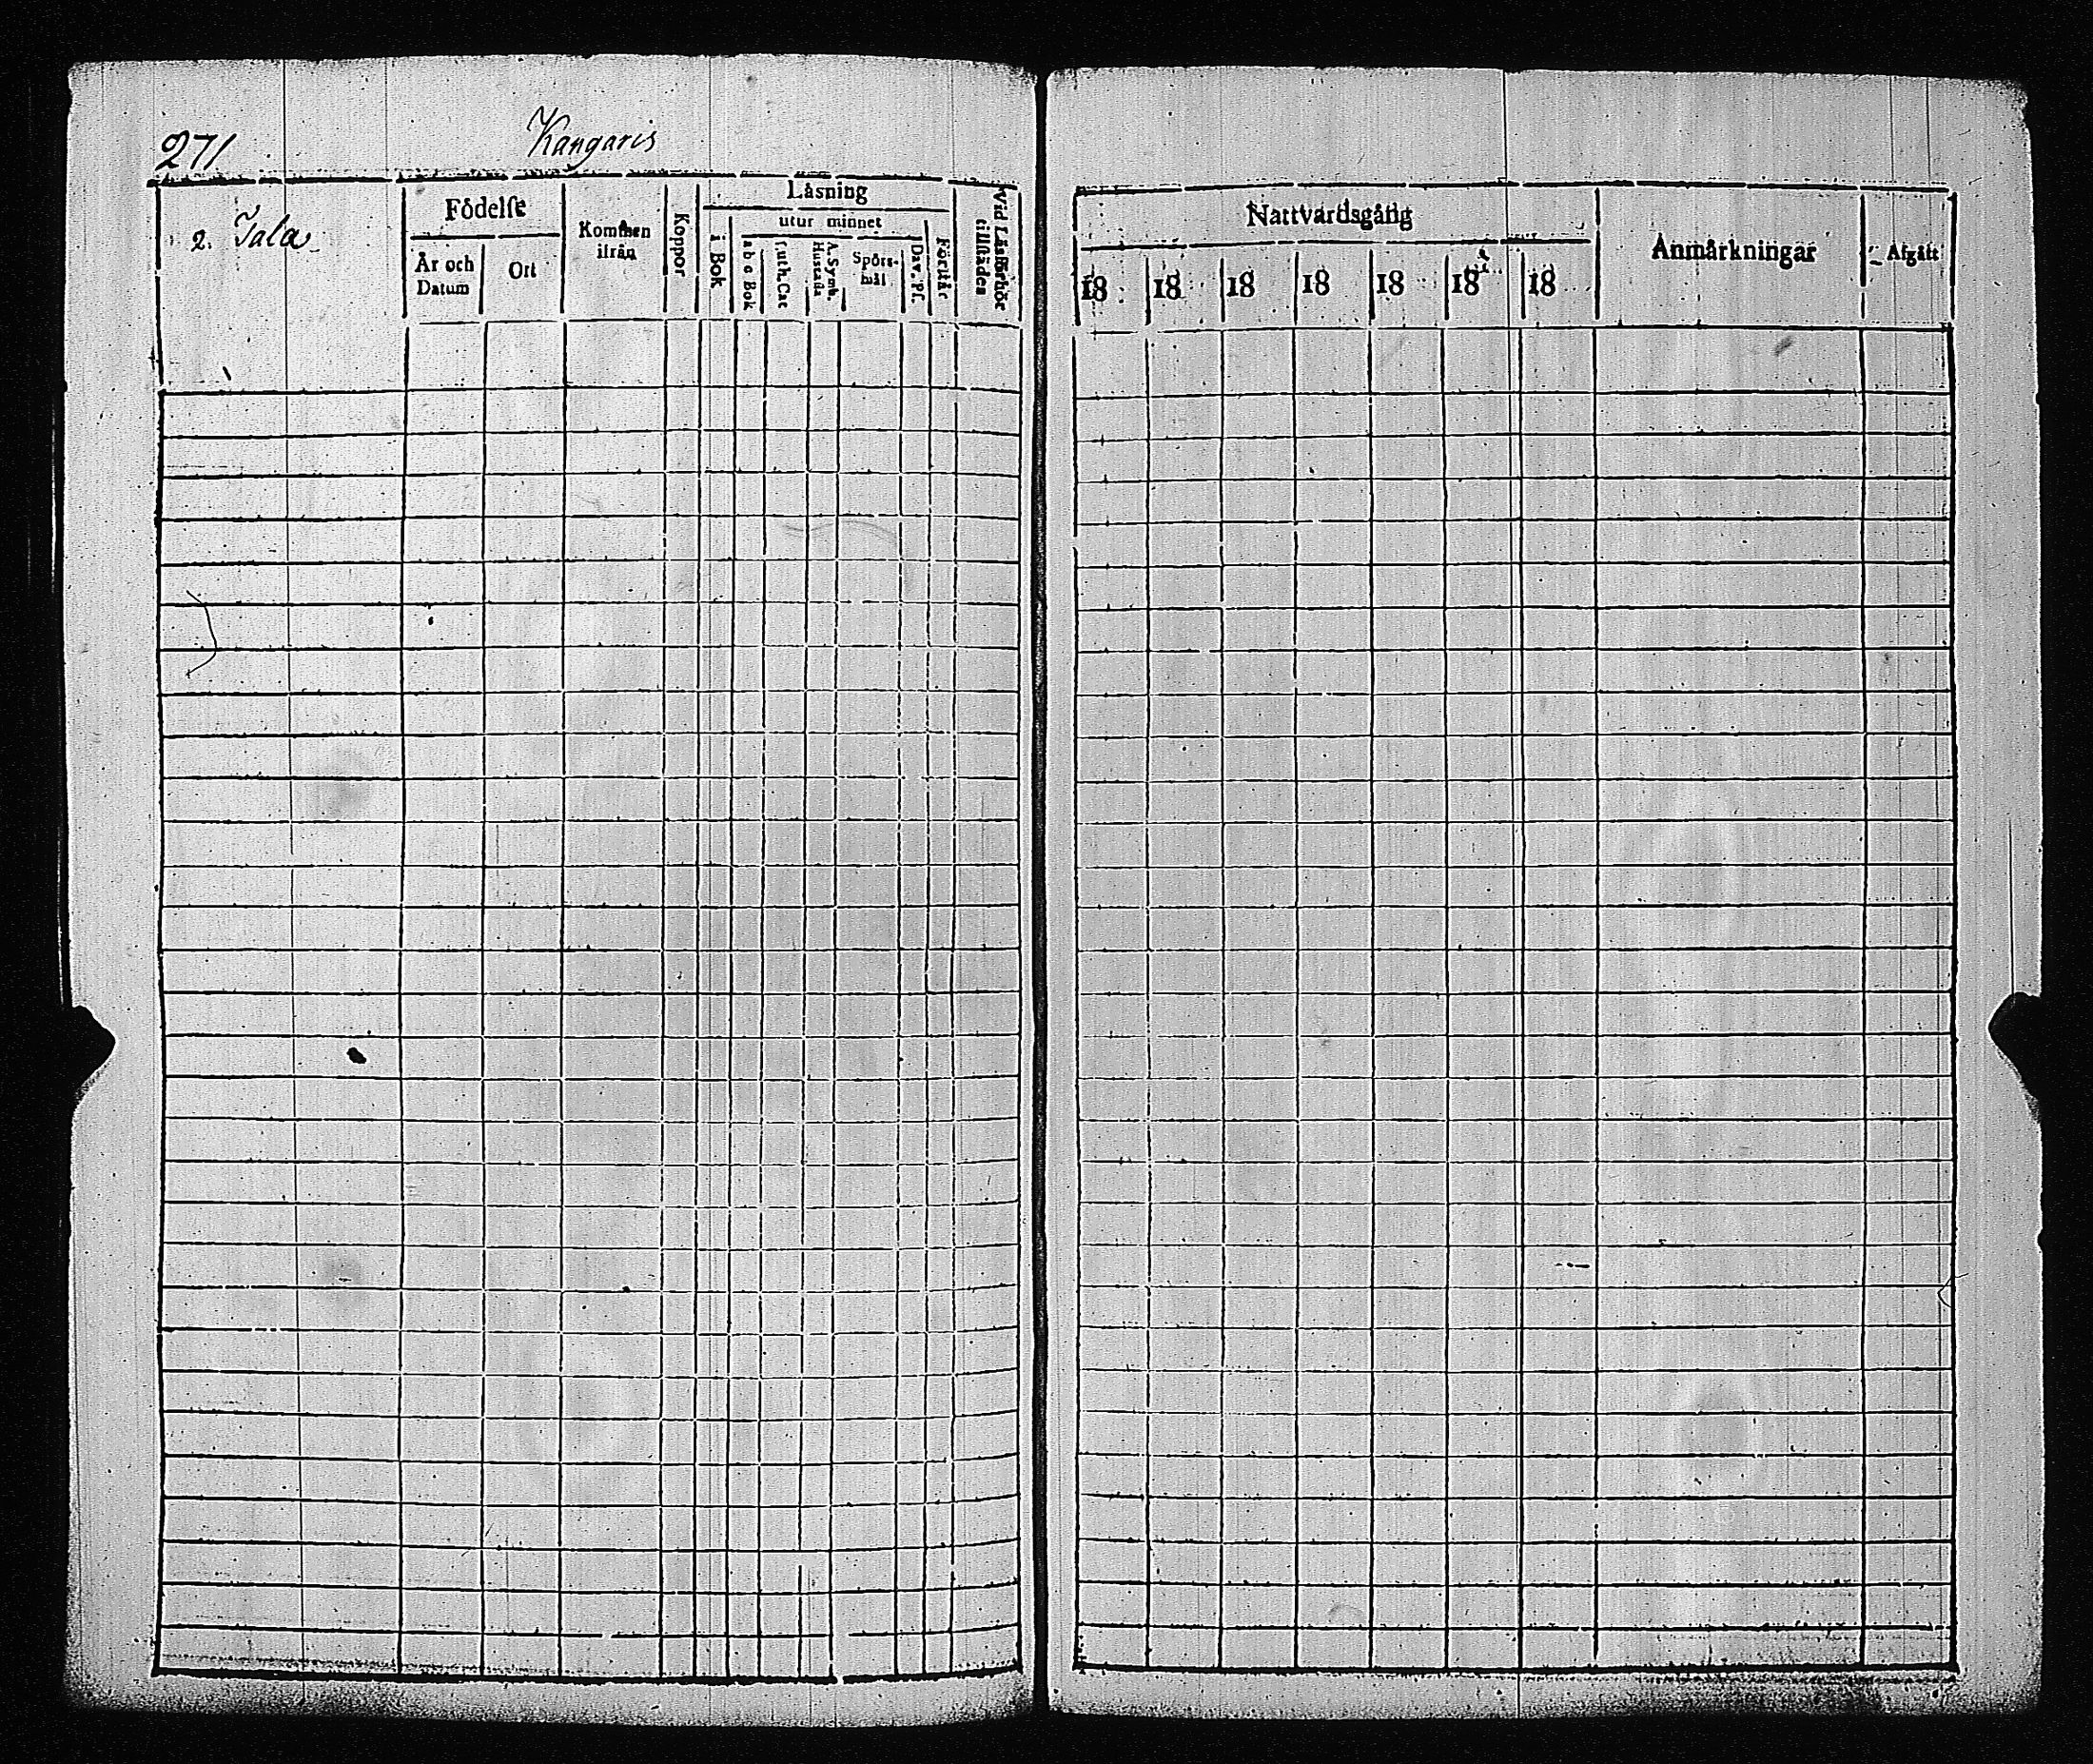 271
Kangaris
2. Tala
Födelse
År och Datum
Ort
Kommen ifrån
Koppor
Läsning
i Bok
utur minnet
a b c Bok
Luth. Cat
A. Symb. Hustafla
Spörs-mål
Dav. Ps.
Förstår
Vid Läsförhör tillstädes
Nattvardsgång
18 18 18 18 18 18 18
Anmärkningar
Afgått